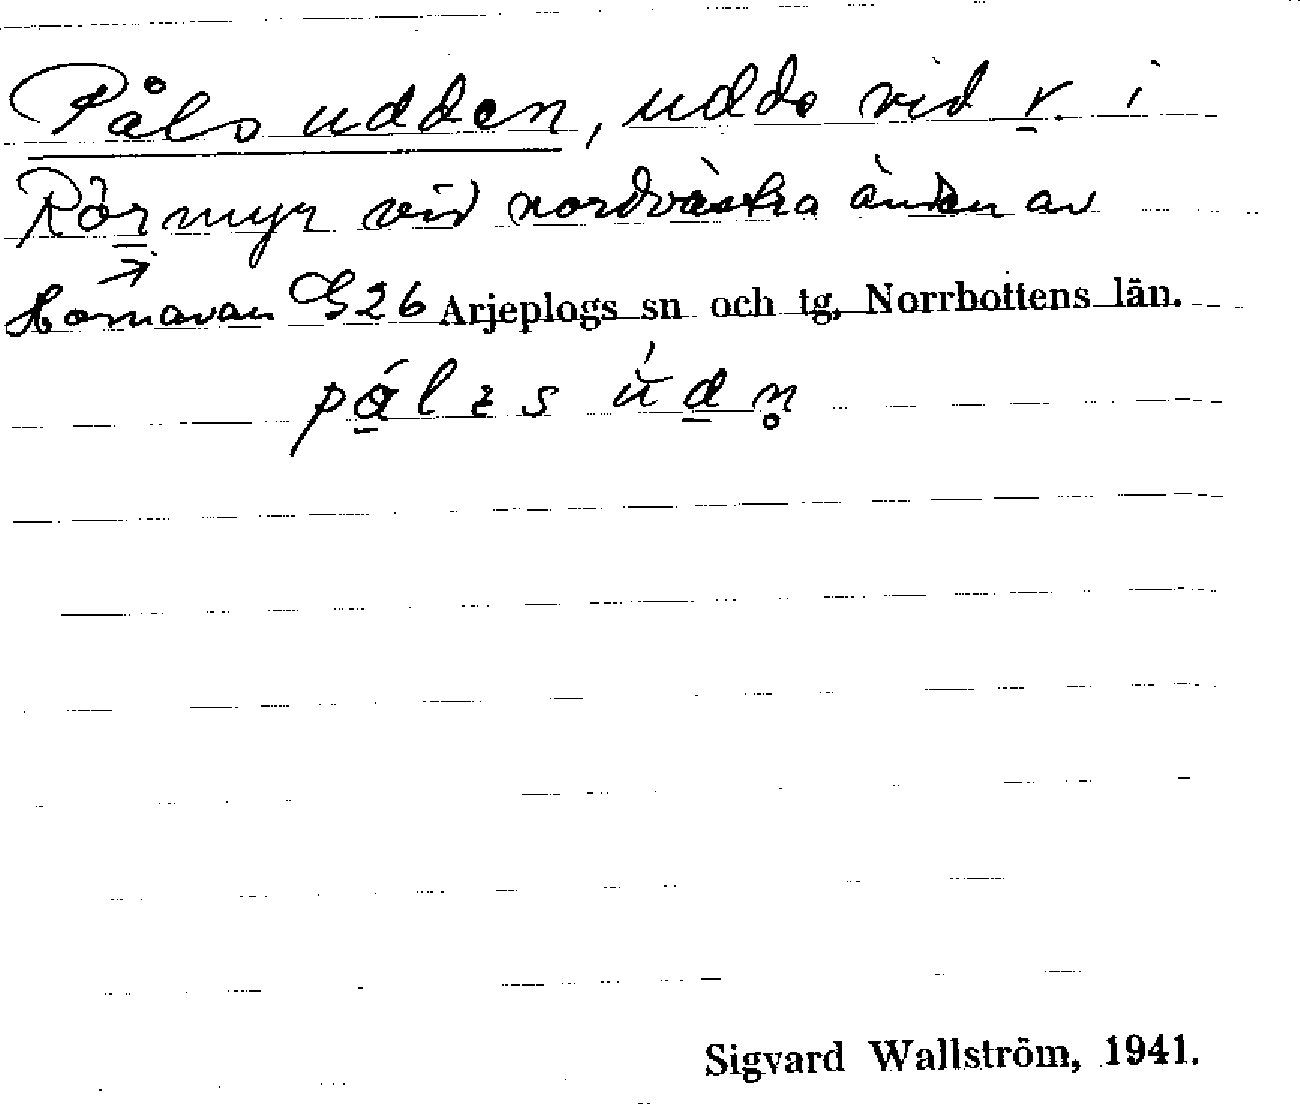 Påls udden, udde vid v. i
Rörmyr vid nordvästra änden av
Hornavan G26 Arjeplogs sn och tg, Norrbottens län.
Sigvard Wallström, 1941.